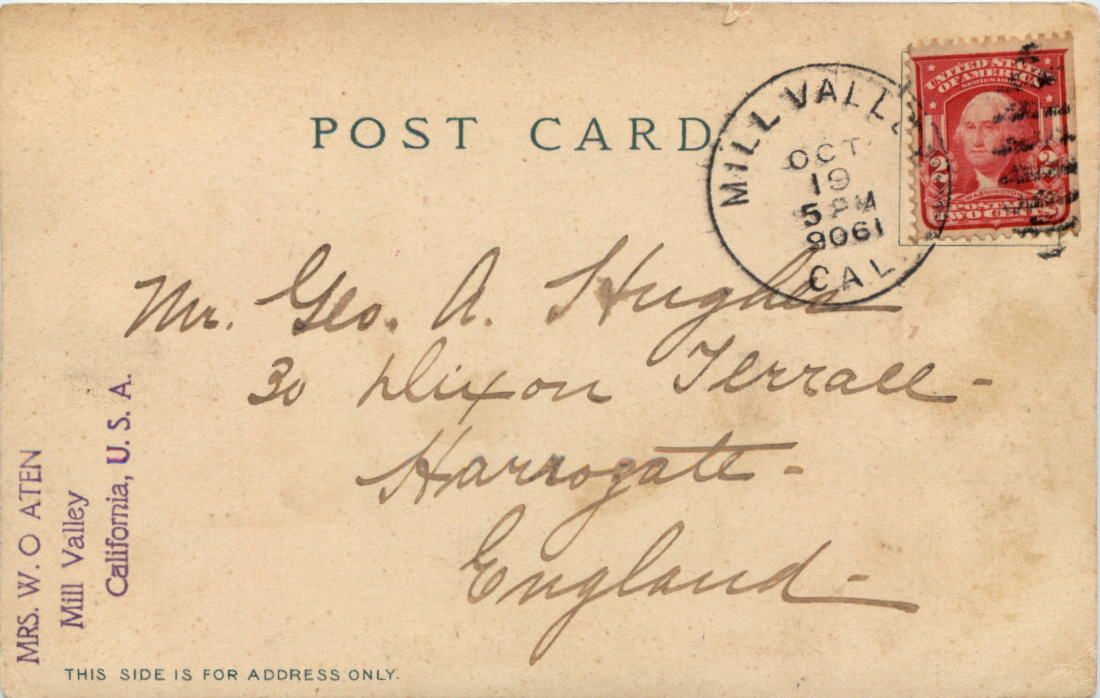 POST CARD
MILL VALLE
OCT
19
5 PM
9061
CAL.
UNITED STATES
OF AMERICA
2 2
WASHINGTON
POSTAGE
TWO CENTS
Mr. Geo. A. Hughes
30 Dixon Terrace -
Harrogate -
England -
MRS. W. O ATEN
Mill Valley
California, U. S. A.
THIS SIDE IS FOR ADDRESS ONLY.